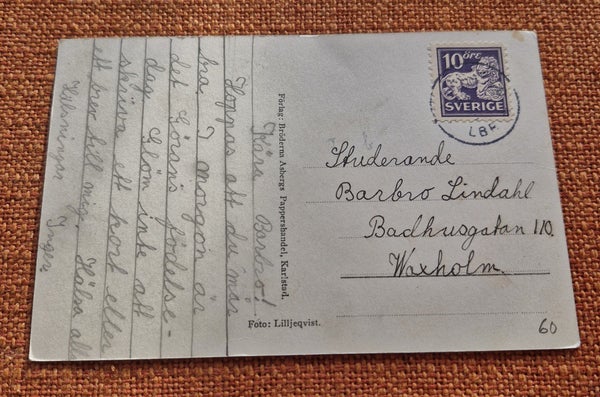 Kära Barbro!
Hoppas att du mår
bra. I morgon är
det Görans födelse-
dag. Glöm inte att
skriva ett kort eller
ett brev till mig. Hälsa alla
Hälsningar Inger
Förlag: Bröderna Asbergs Pappershandel, Karlstad.
Foto: Lilljeqvist.
10 ÖRE
SVERIGE
LBF
Studerande
Barbro Lindahl
Badhusgatan 110.
Waxholm.
60